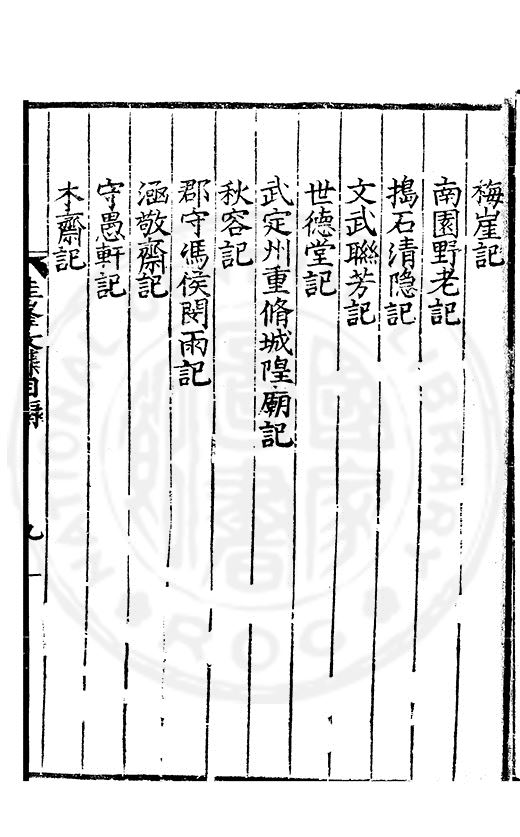 梅崖記
南園野老記
搗石清隐記
文武聮芳記
世德堂記
武定州重脩城隍廟記
秋容記
郡守馮侯閔雨記
涵敬齋記
守愚軒記
木齋記
目録
九